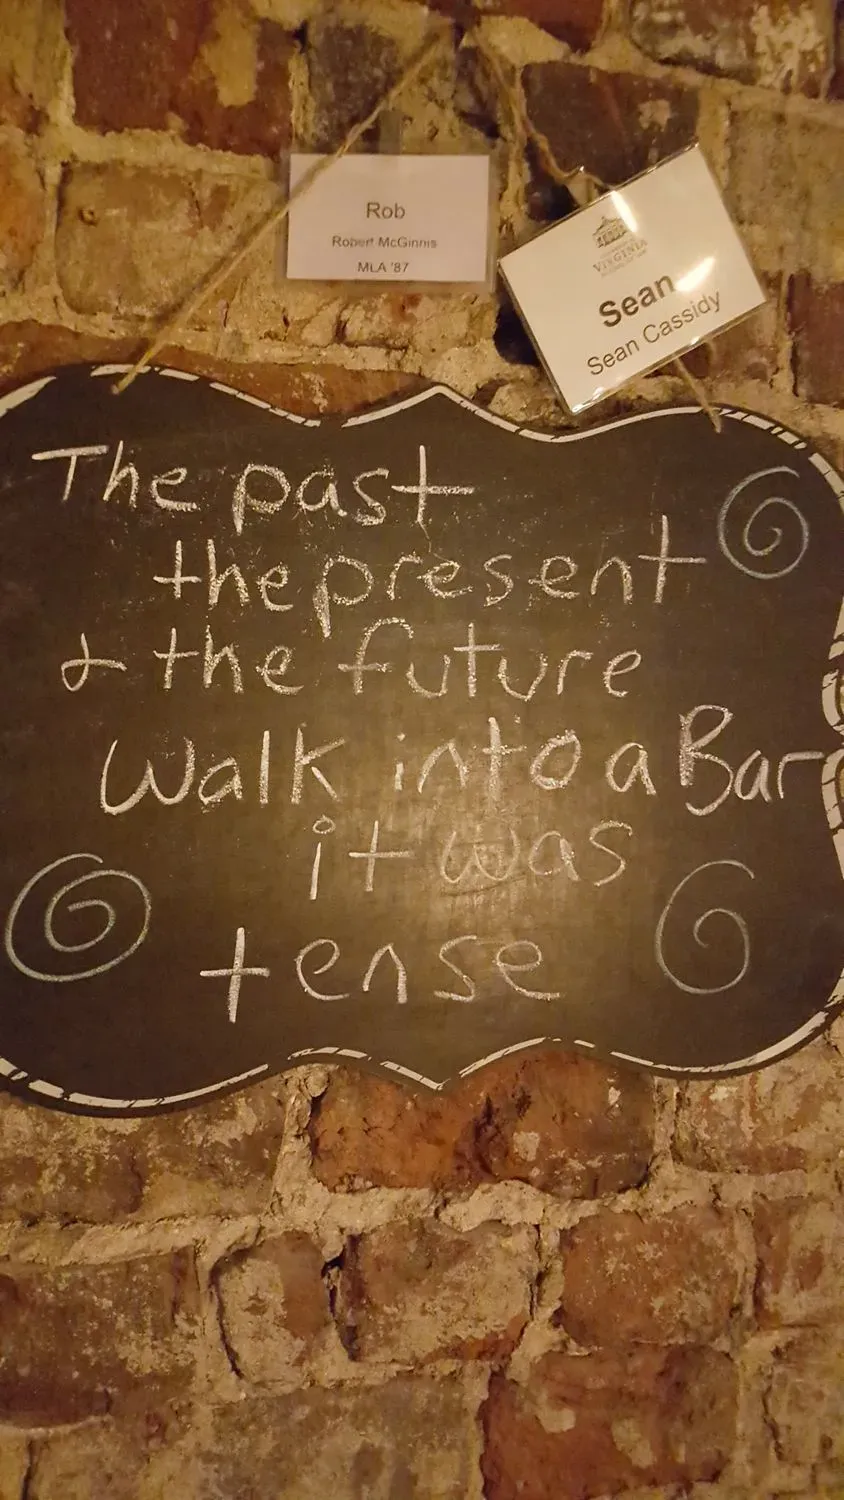 Rob
Robert McGinnis
MLA '87
VIRGINIA
Sean
Sean Cassidy
The past
the present
& the future
Walk into a Bar
it was
tense